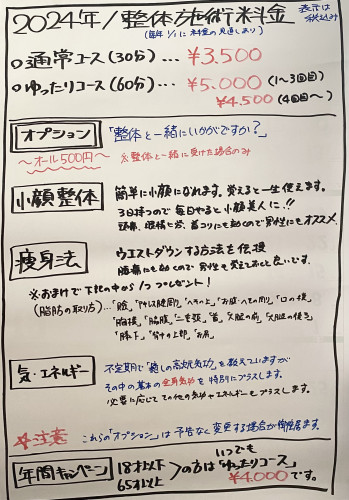 2024年/整体施術料金
表示は税込み
(毎年1/1に料金の見直しあり)
○通常コース(30分)…¥3.500
○ゆったりコース(60分)…¥5.000(1〜3回目)
¥4.500(4回目〜)
オプション「整体と一緒にいかがですか?」
〜オール500円〜 ※整体と一緒に受けた場合のみ
小顔整体
簡単に小顔になれます。覚えると一生使えます。
3日持つので毎日やると小顔美人に!!
頭痛、眼精疲労、首コリにも効くので男性にもオススメ。
痩身法
ウエストダウンする方法を伝授
腰痛にも効くので男性も覚えておくと良いです。
※おまけで下記の中から1つプレゼント!
(脂肪の取り方)…「腹」「わき腹周り」「へその上」「お腹・への周り」「口の横」
「胸横」「脇腹」「二重顎」「首」「太腿の前」「太腿の後ろ」
「膝下」「背中の上部」「お尻」
気・エネルギー
不定期に「癒しの高次気功」を教えていますが
その中の基本の全身気功を特別にプラスします。
必要に応じてその他の気功やエネルギーもプラスします。
☆注意
これらの「オプション」は予告なく変更する場合が御座居ます。
年間キャンペーン
18才以下
65才以上
>の方はいつでも「ゆったりコース」
¥4.000です。